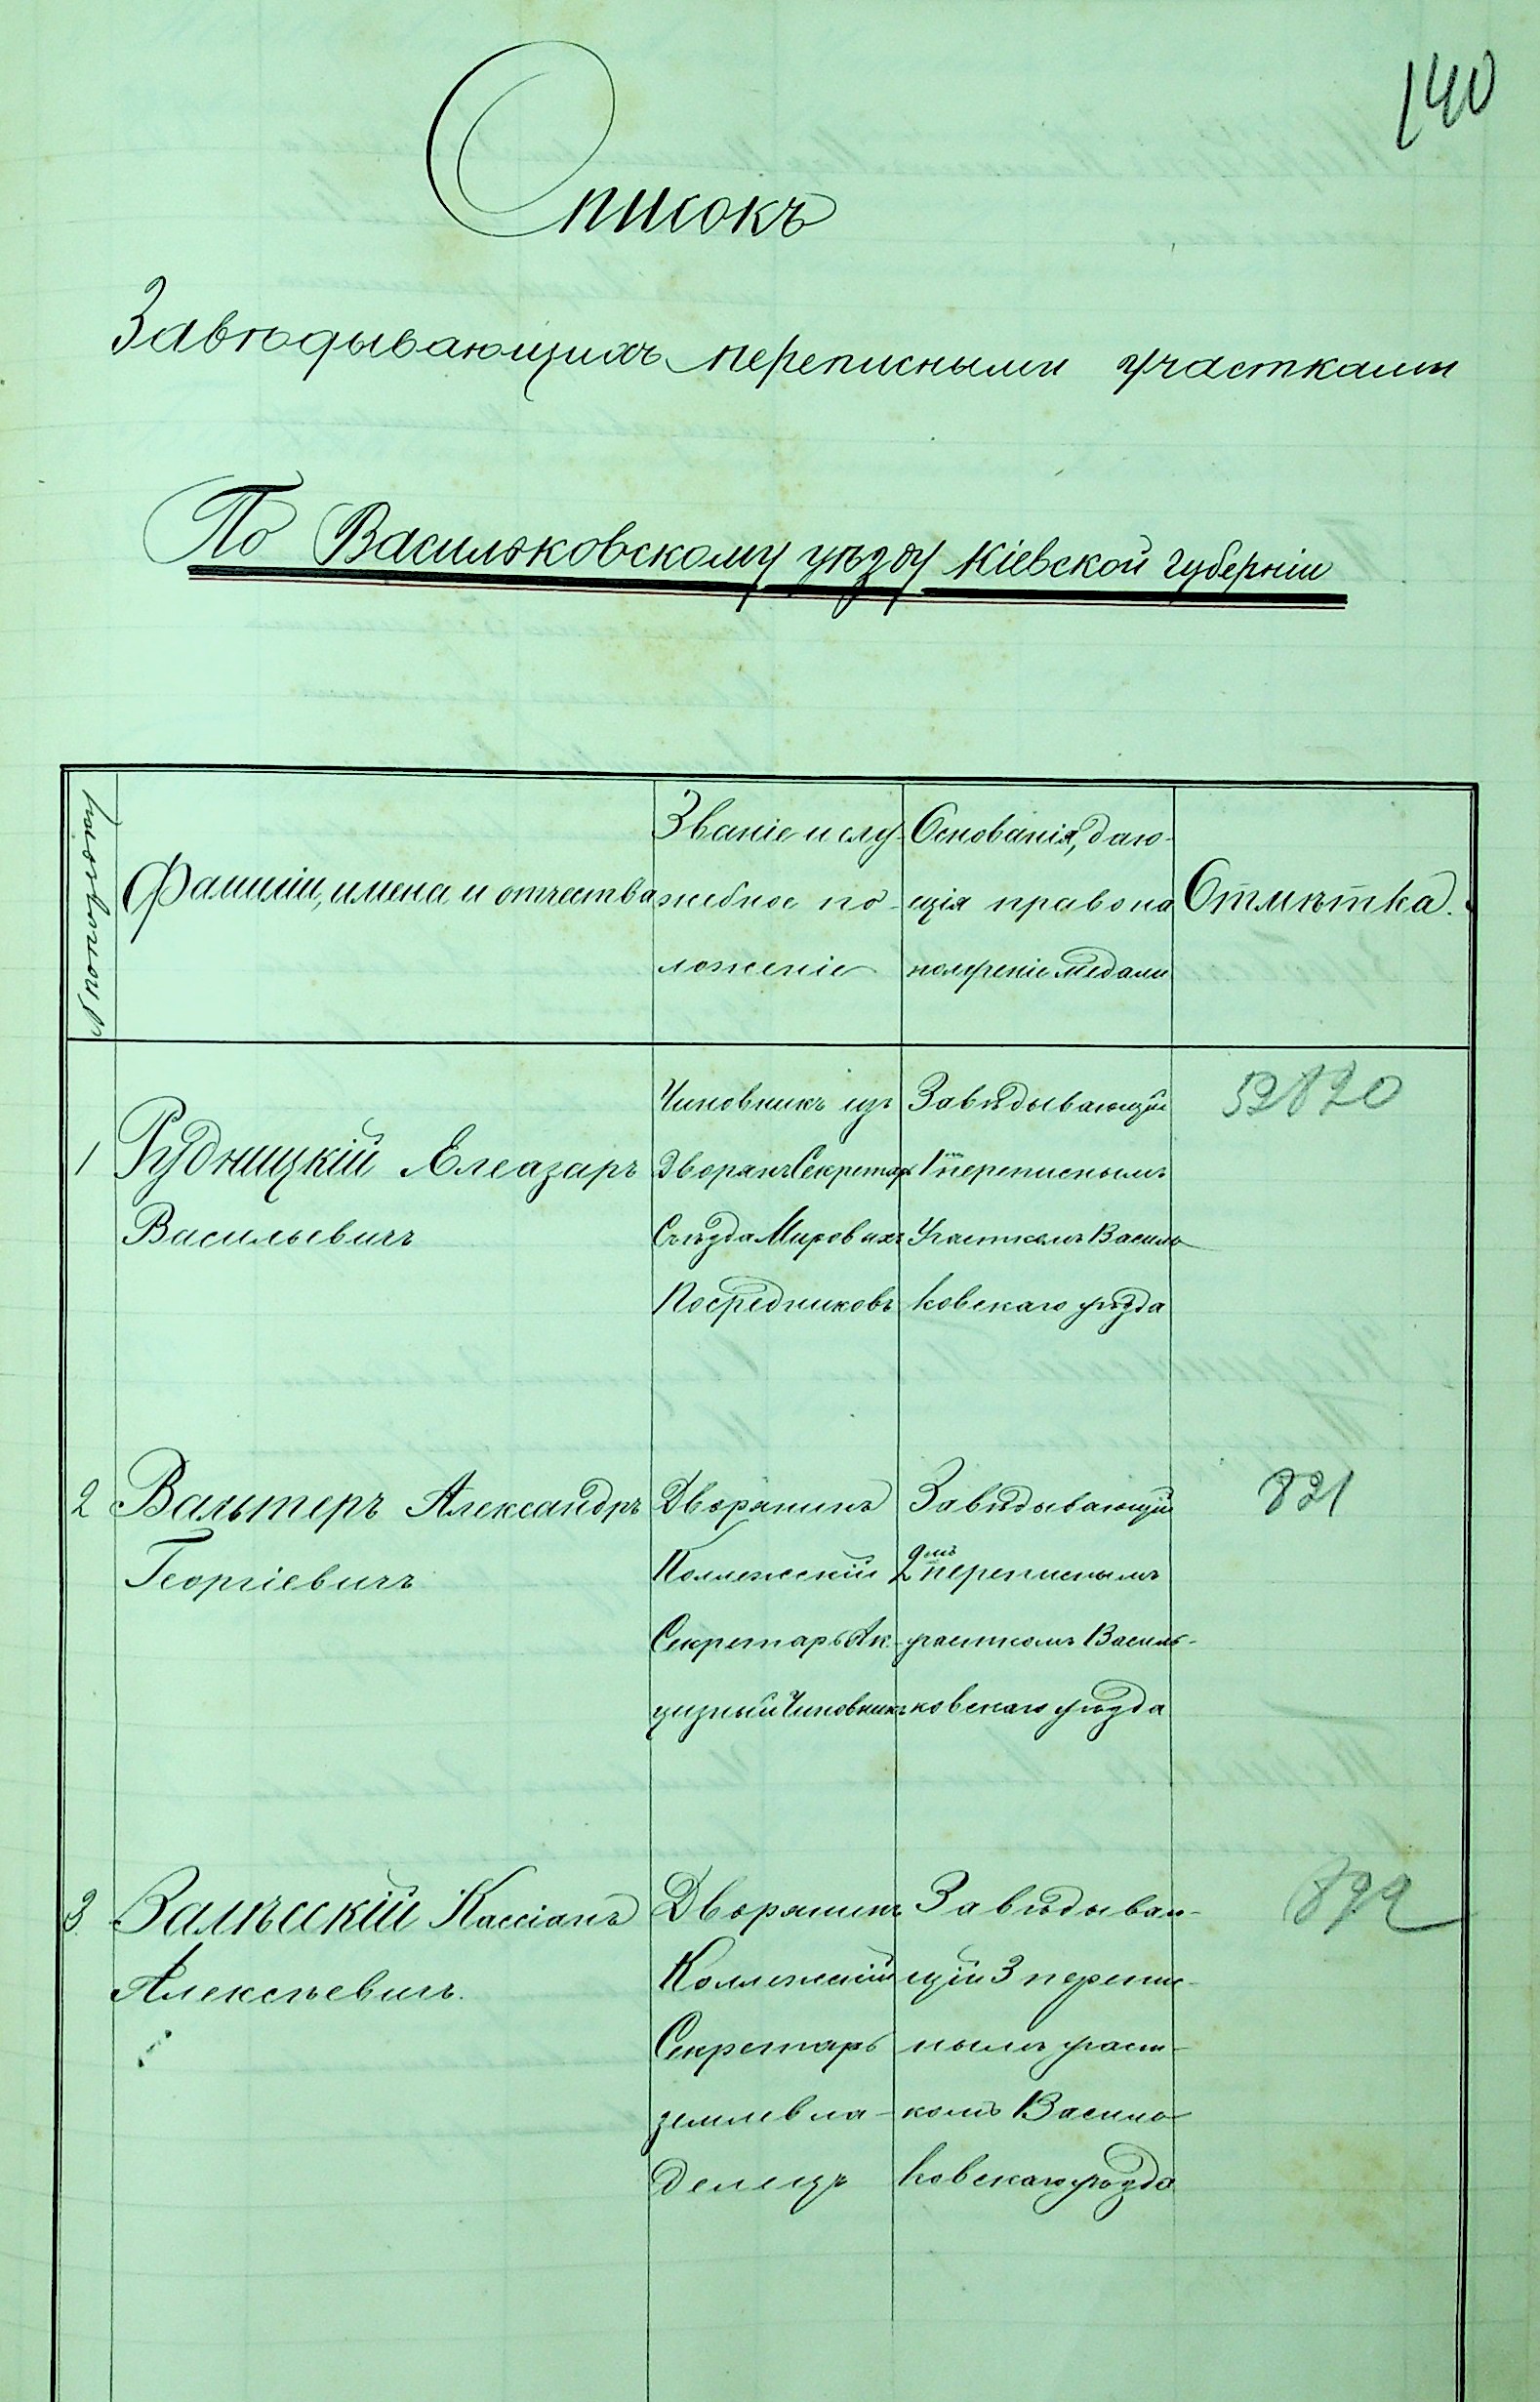 140
Списокъ
Завѣдывающихъ переписными участками
По Васильковскому уѣзду Кіевской губерніи
№ по порядку
Фамиліи, имена и отчества
Званіе и слу-
жебное по-
ложеніе
Основанія, даю-
щія право на
полученіе медали
Отмѣтка.
1
Рудницкій Елеазаръ
Васильевичъ
Чиновникъ изъ
Дворянъ Секретарь
Съѣзда Мировыхъ
Посредниковъ
Завѣдывающій
1мъ переписнымъ
Участкомъ Василь
ковскаго уѣзда
52820
2
Вальтеръ Александръ
Георгіевичъ
Дворянинъ
Коллежскій
Секретарь Ак-
цизный Чиновникъ
Завѣдывающій
2мъ переписнымъ
участкомъ Василь-
ковскаго уѣзда
821
3.
Залѣсскій Кассіанъ
Алексѣевичъ.
Дворянинъ
Коллежскій
Секретарь
землевла-
делецъ
Завѣдываю-
щій 3 перепис-
нымъ участ-
комъ Василь
ковскаго уѣзда
822